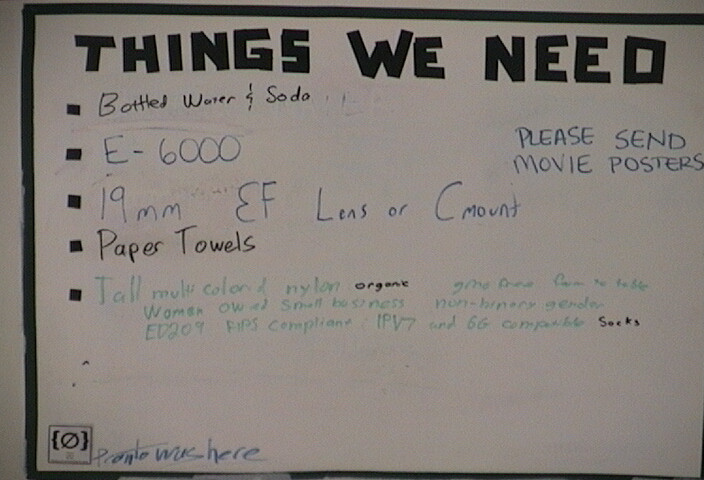 THINGS WE NEED
Bottled Water & Soda
E-6000
PLEASE SEND
MOVIE POSTERS
19mm EF Lens or Cmount
Paper Towels
Tall multi colored nylon organic gmo free farm to table
Woman owed small business non-binary gender
ED209 FIPS compliant IPV7 and 6G compatible Socks
{Ø}
was here